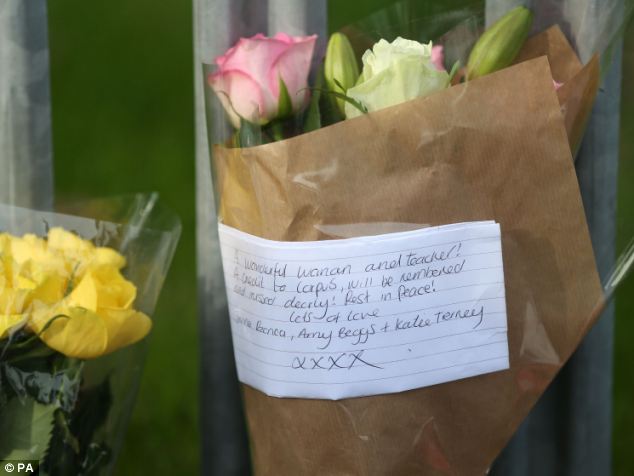 A wonderful woman and teacher!
A credit to Corpus, will be rembered
and missed dearly! Rest in Peace!
lots of love
Amy Beggs + Katie Tierney
xxxx
© PA